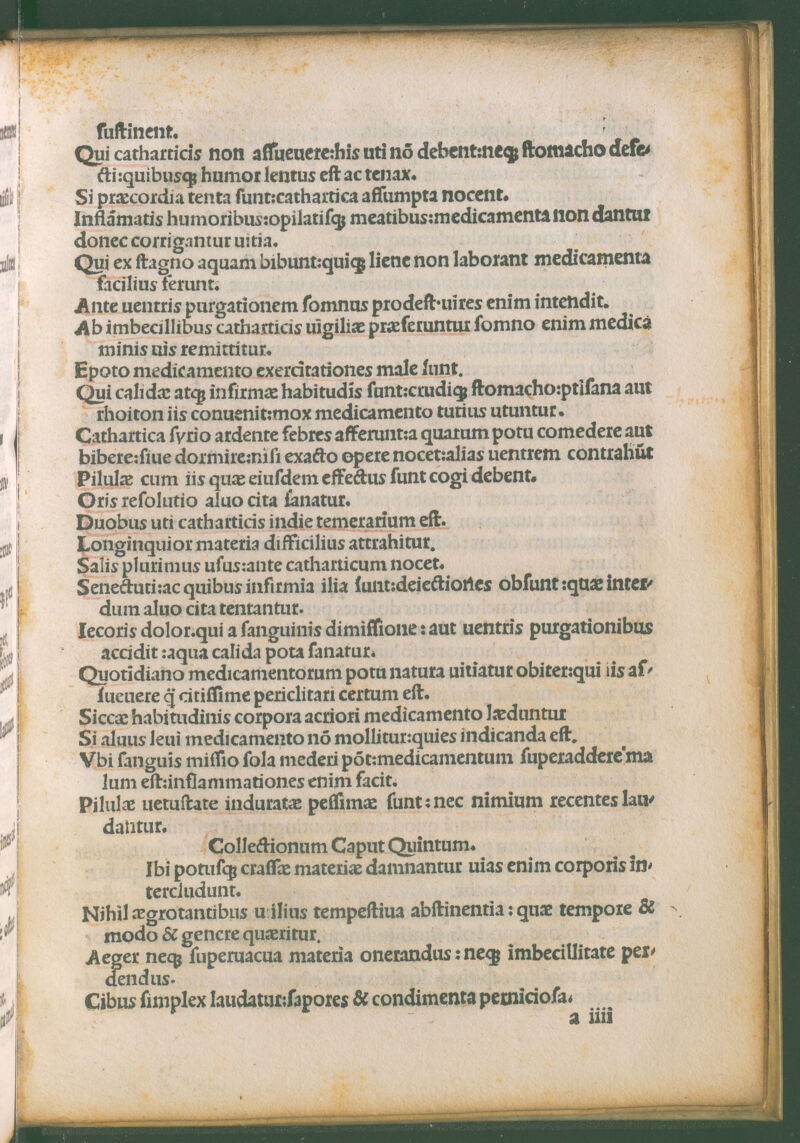 ſuſtinent.
Qui catharticis non aſſueuere:his uti nõ debent:neqꝫ ſtomacho defe⸗
cti:quibusqꝫ humor lentus eſt ac tenax.
Si præcordia tenta ſunt:cathartica aſſumpta nocent.
Inflãmatis humoribus:opilatiſqꝫ meatibus:medicamenta non dantur
donec corrigantur uitia.
Qui ex ſtagno aquam bibunt:quiqꝫ liene non laborant medicamenta
facilius ferunt.
Ante uentris purgationem ſomnus prodeſt·uires enim intendit.
Ab imbecillibus catharticis uigiliæ præferuntur ſomno enim medicá
minis uis remittitur.
Epoto medicamento exercitationes male ſunt.
Qui calidæ atqꝫ infirmæ habitudĩs ſunt:crudiqꝫ ſtomacho:ptiſana aut
rhoiton iis conuenit:mox medicamento tutius utuntur.
Cathartica ſyrio ardente febres afferunt:a quarum potu comedere aut
bibere:ſiue dormire:niſi exacto opere nocet:alias uentrem contrahũt
Pilulæ cum iis quæ eiuſdem effectus ſunt cogi debent.
Oris reſolutio aluo cita ſanatur.
Duobus uti catharticis indie temerarium eſt.
Longinquior materia difficilius attrahitur.
Salis plurimus uſus:ante catharticum nocet.
Senectuti:ac quibus infirmia ilia ſunt:deiectiones obſunt:quæ inter⸗
dum aluo cita tentantur.
Iecoris dolor.qui a ſanguinis dimiſſione:aut uentris purgationibus
accidit:aqua calida pota ſanatur.
Quotidiano medicamentorum potu natura uitiatur obiter:qui iis aſ⸗
ſueuere q̃ citiſſime periclitari certum eſt.
Siccæ habitudinis corpora acriori medicamento læduntur
Si aluus leui medicamento nõ mollitur:quies indicanda eſt.
Vbi ſanguis miſſio ſola mederi põt:medicamentum ſuperaddere ma
lum eſt:inflammationes enim facit.
Pilulæ uetuſtate induratæ peſſimæ ſunt:nec nimium recentes lau⸗
dantur.
Collectionum Caput Quintum.
Ibi potuſqꝫ craſſæ materiæ damnantur uias enim corporis in⸗
tercludunt.
Nihil ægrotantibus utilius tempeſtiua abſtinentia:quæ tempore &
modo & genere quæritur.
Aeger neqꝫ ſuperuacua materia onerandus:neqꝫ imbecillitate per⸗
dendus.
Cibus ſimplex laudatur:ſapores & condimenta pernicioſa.
a iiii